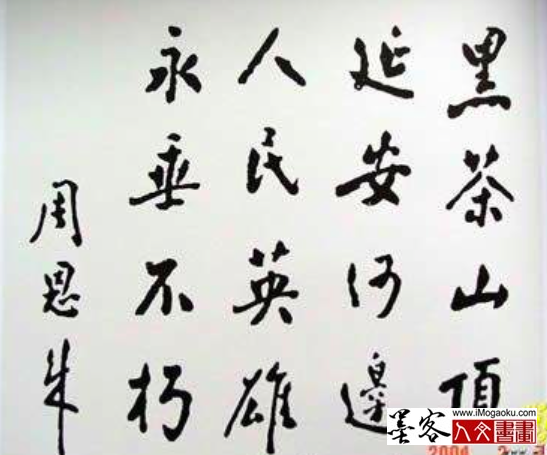 黑茶山頂
延安河邊
人民英雄
永垂不朽
周恩来
www.iMogaoku.com
墨客
人文書畫
2004